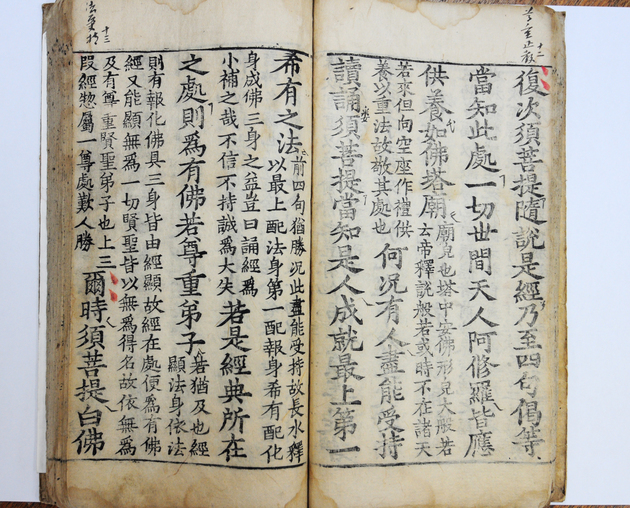 十二
復次須菩提隨說是經乃至四句偈等
當知此處一切世間天人阿修羅皆應
供養如佛塔廟
廟皃也塔中安佛形皃大般若
云帝釋說般若或時不在諸天
若來但向空座作禮供
養以重法故敬其處也
何況有人盡能受持
讀誦須菩提當知是人成就最上第一
十三
希有之法
前四句猶勝況此盡能受持故長水釋
以最上配法身第一配報身希有配化
身成佛三身之益豈曰誦經爲
小補之哉不信不持誠爲大失
若是經典所在
之處則爲有佛若尊重弟子
若猶及也經
顯法身依法
則有報化佛具三身皆由經顯故經在處便爲有佛
經又能顯無爲一切賢聖皆以無爲得名故依無爲
及有尊重賢聖弟子也上三
段經惣屬一尊處歎人勝
爾時須菩提白佛